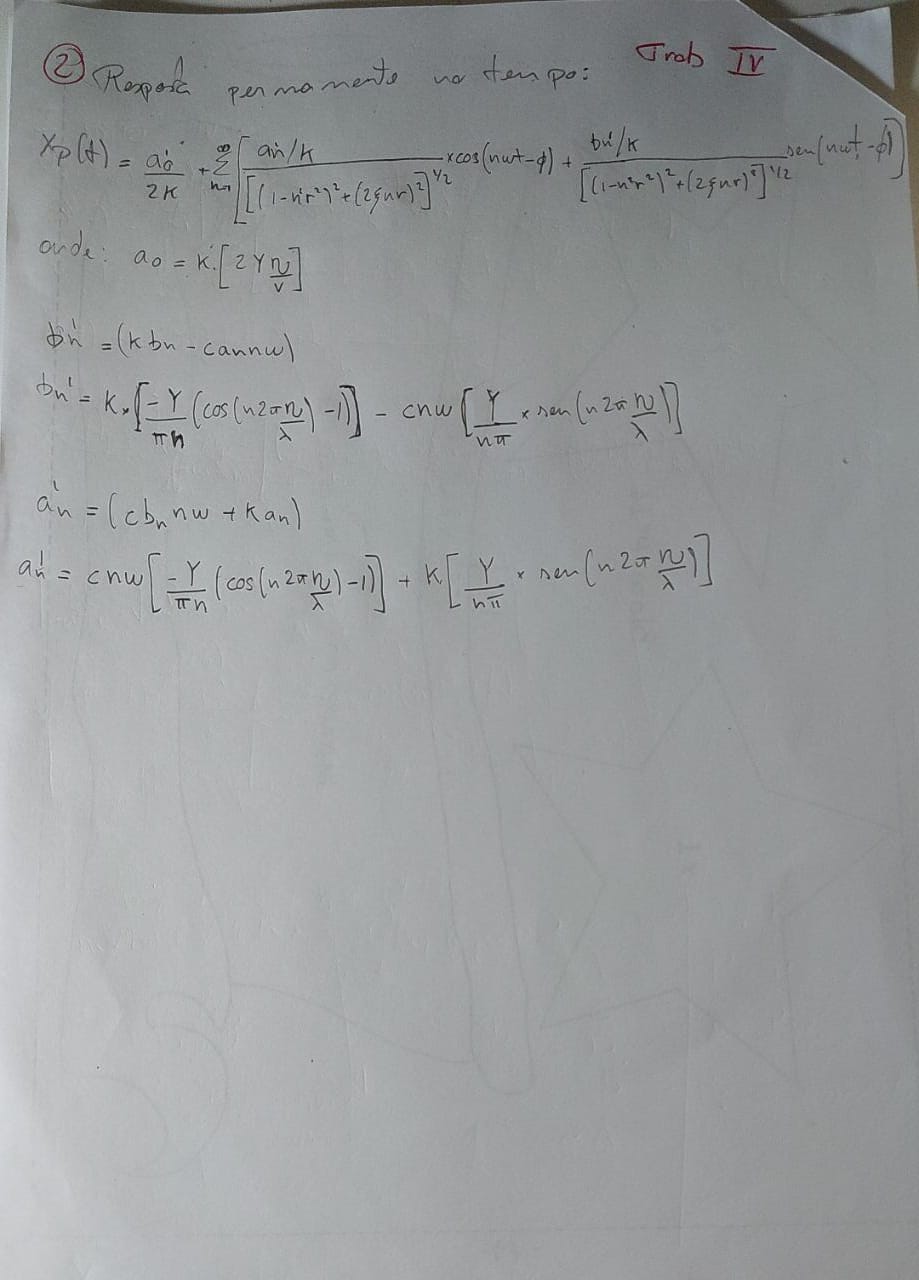 ② Resposta permamente no tempo: Trab IV
Xp(t) = a₀'/2K + ∞Σn=1 [ an'/K / [(1-n²r²)²+(2ξnr)²]^1/2 × cos(nωt-φ) + bn'/K / [(1-n²r²)²+(2ξnr)²]^1/2 sen(nωt-φ) ]
onde: a₀ = K.[2Yη/v]
bn' = (kbn - cannω)
bn' = K×[-Y/πn (cos(n2πη/λ) -1)] - cnω[Y/nπ × sen(n2πη/λ)]
an' = (cbnnω + Kan)
an' = cnω[-Y/πn (cos(n2πη/λ) -1)] + K[Y/nπ × sen(n2πη/λ)]